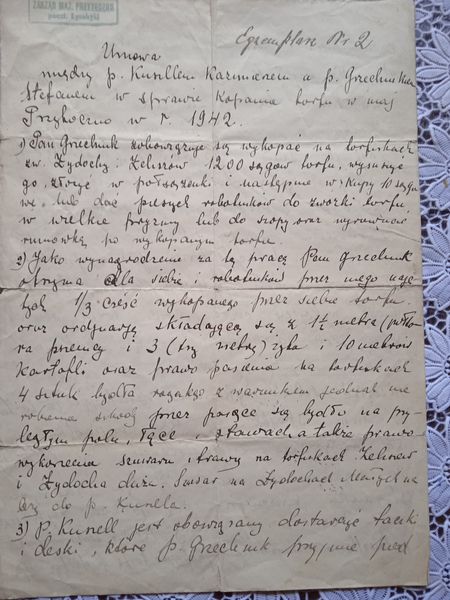 ZARZĄD MAJ. PRZYTOCZNO
poczt. Łysobyki
Egzemplarz Nr 2
Umowa
między p. Kusellem Kazimierzem a p. Grzechnikiem
Stefanem w sprawie kopania torfu w maj.
Przytoczno w r. 1942.
1) Pan Grzechnik zobowiązuje się wykopać na torfiskach
zw. Żydochy i Zeliszów 1200 sągów torfu, wysuszyć
go, złożyć w półsążenki i następnie w kupy 10 sągo
we, lub dać pięciu robotników do zwózki torfu
w wielkie pryzmy lub do szopy oraz wyrównać
rumówkę po wykopanym torfie.
2) Jako wynagrodzenie za tę pracę Pan Grzechnik
otrzyma dla siebie i robotników przez niego naję
tych 1/3 część wykopanego przez siebie torfu.
oraz ordynarję składającą się z 1½ metra (półto
ra pszenicy i 3 (trzy metry) żyta i 10 metrów
kartofli oraz prawo pasienia na torfiskach
4 sztuk bydła rogatego z warunkiem jednak nie
robienia szkody przez pasące się bydło na przy
ległym polu, łące i stawach a także prawo
wykoszenia szuwaru i trawy na torfiskach Zeliszew
i Żydocha duża. Szuwar na Żydochach Małych na
leży do p. Kusella.
3) P. Kusell jest obowiązany dostarczyć taczki
i deski, które p. Grzechnik przyjmie pod